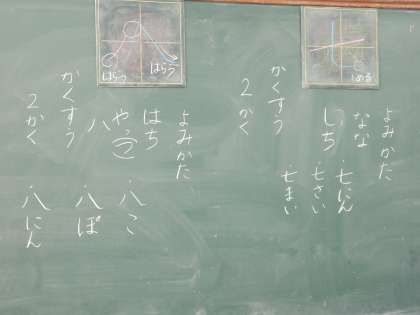 とめる
よみかた
なな
しち
・七にん
・七さい
・七まい
かくすう
2かく
はらう
はらう
よみかた
はち
や(つ)
八
・八こ
・八ぽ
・八にん
かくすう
2かく